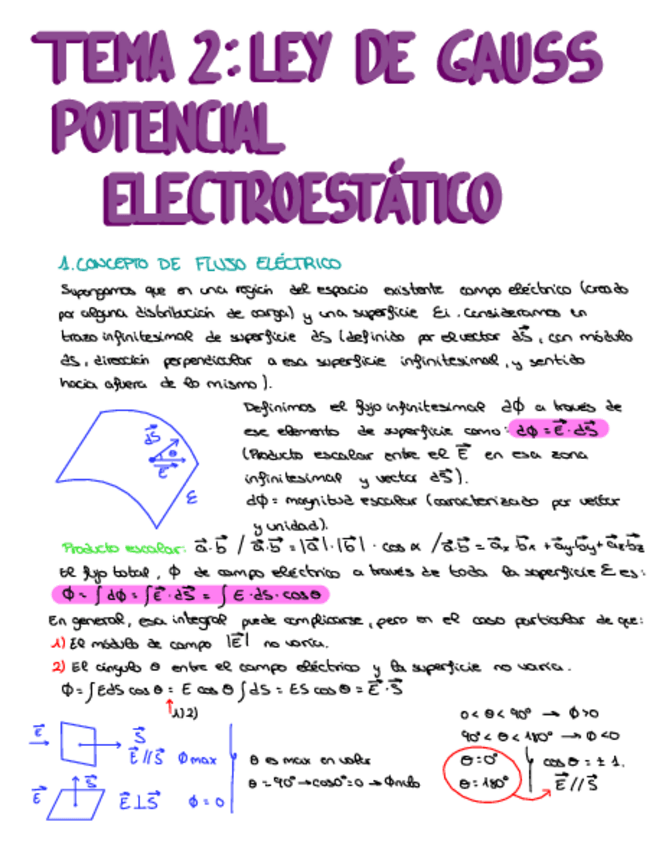 TEMA 2: LEY DE GAUSS
POTENCIAL
ELECTROESTÁTICO
1. CONCEPTO DE FLUJO ELÉCTRICO
Supongamos que en una región del espacio existente campo eléctrico (creado
por alguna distribución de carga) y una superficie Ei. Consideramos un
trazo infinitesimal de superficie dS (definido por el vector dS⃗, con módulo
dS, dirección perpendicular a esa superficie infinitesimal, y sentido
hacia afuera de la misma).
Definimos el flujo infinitesimal dΦ a través de
ese elemento de superficie como: dΦ = E⃗·dS⃗
(Producto escalar entre el E⃗ en esa zona
infinitesimal y vector dS⃗).
dΦ = magnitud escalar (caracterizado por
y unidad).
dS⃗
θ
E⃗
Σ
Producto escalar: a⃗·b⃗ / a⃗·b⃗ = |a⃗|·|b⃗|·cos α / a⃗·b⃗ = ax·bx + ay·by + az·bz
El flujo total, Φ de campo eléctrico a través de toda la superficie Σ es:
Φ = ∫dΦ = ∫E⃗·dS⃗ = ∫E·dS·cosθ
En general, esa integral puede complicarse, pero en el caso particular de que:
1) El módulo de campo |E⃗| no varía.
2) El ángulo θ entre el campo eléctrico y la superficie no varía.
Φ = ∫EdS cosθ = E cosθ ∫dS = ES cosθ = E⃗·S⃗
1) 2)
E⃗ S⃗ E⃗//S⃗ Φmax
E⃗ S⃗ E⃗⊥S⃗ Φ = 0
θ es max en valor
θ = 90° → cos0° = 0 → Φnulo
0 < θ < 90° → Φ>0
90° < θ < 180° → Φ<0
θ = 0°
θ = 180°
cosθ = ± 1.
E⃗//S⃗